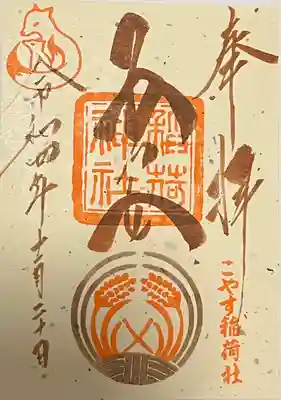 奉拝
こやす稲荷社
稲荷
神社
令和四年十 月二十日